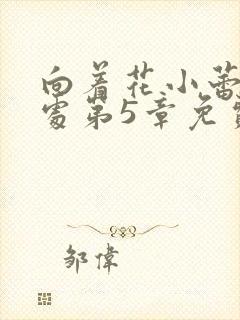 向着花小蕾
处第5章免
邹伟